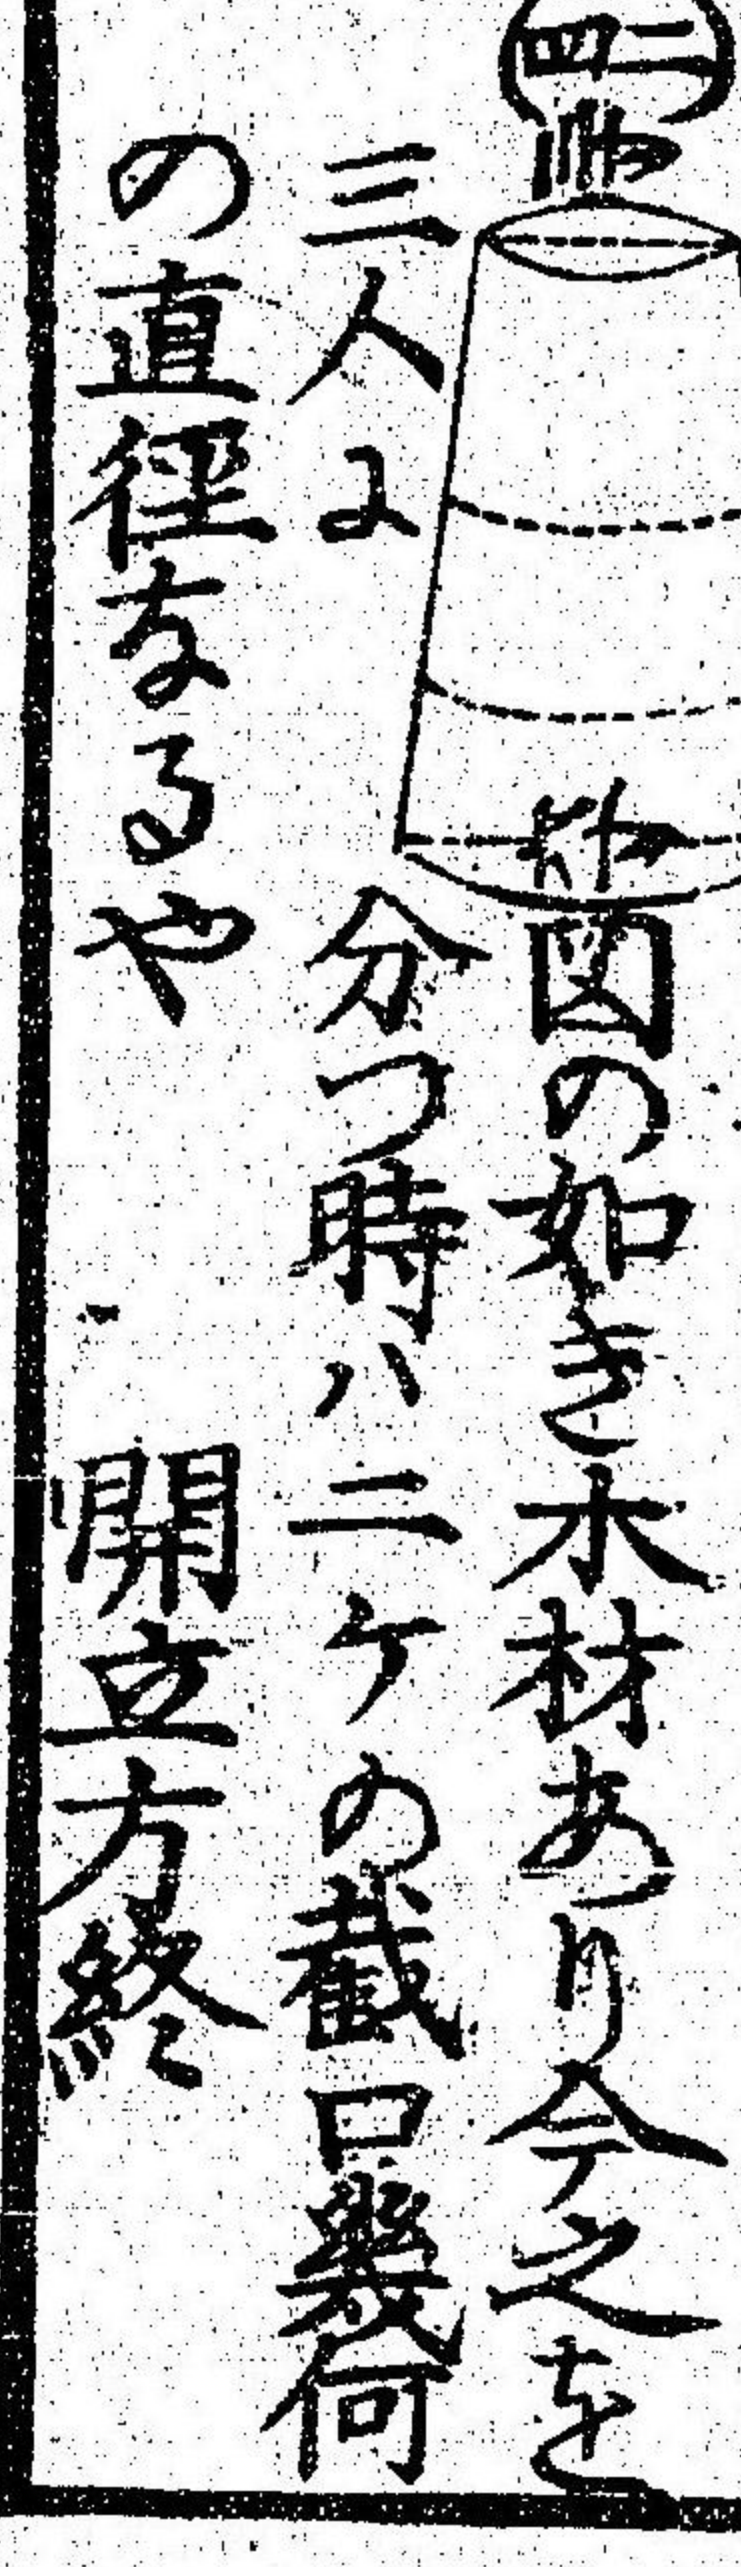 二四
図の如き木材あり今之を
三人に分つ時ハ二ケの截口幾何
の直徑なるや
開立方終